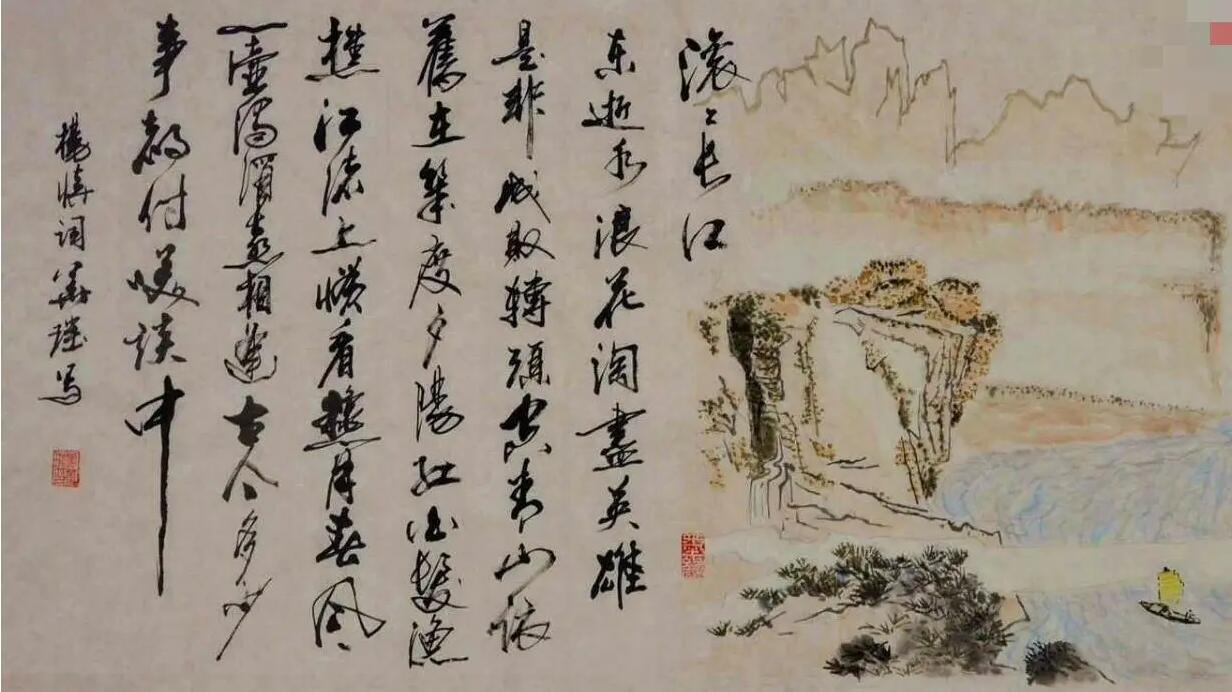 滚〻长江
东逝水浪花淘盡英雄
是非成败轉頭空青山依
舊在幾度夕陽红白髮漁
樵江渚上惯看龝月春风
一壶濁酒喜相逢古今多少
事都付笑谈中
楊慎词 瑶写